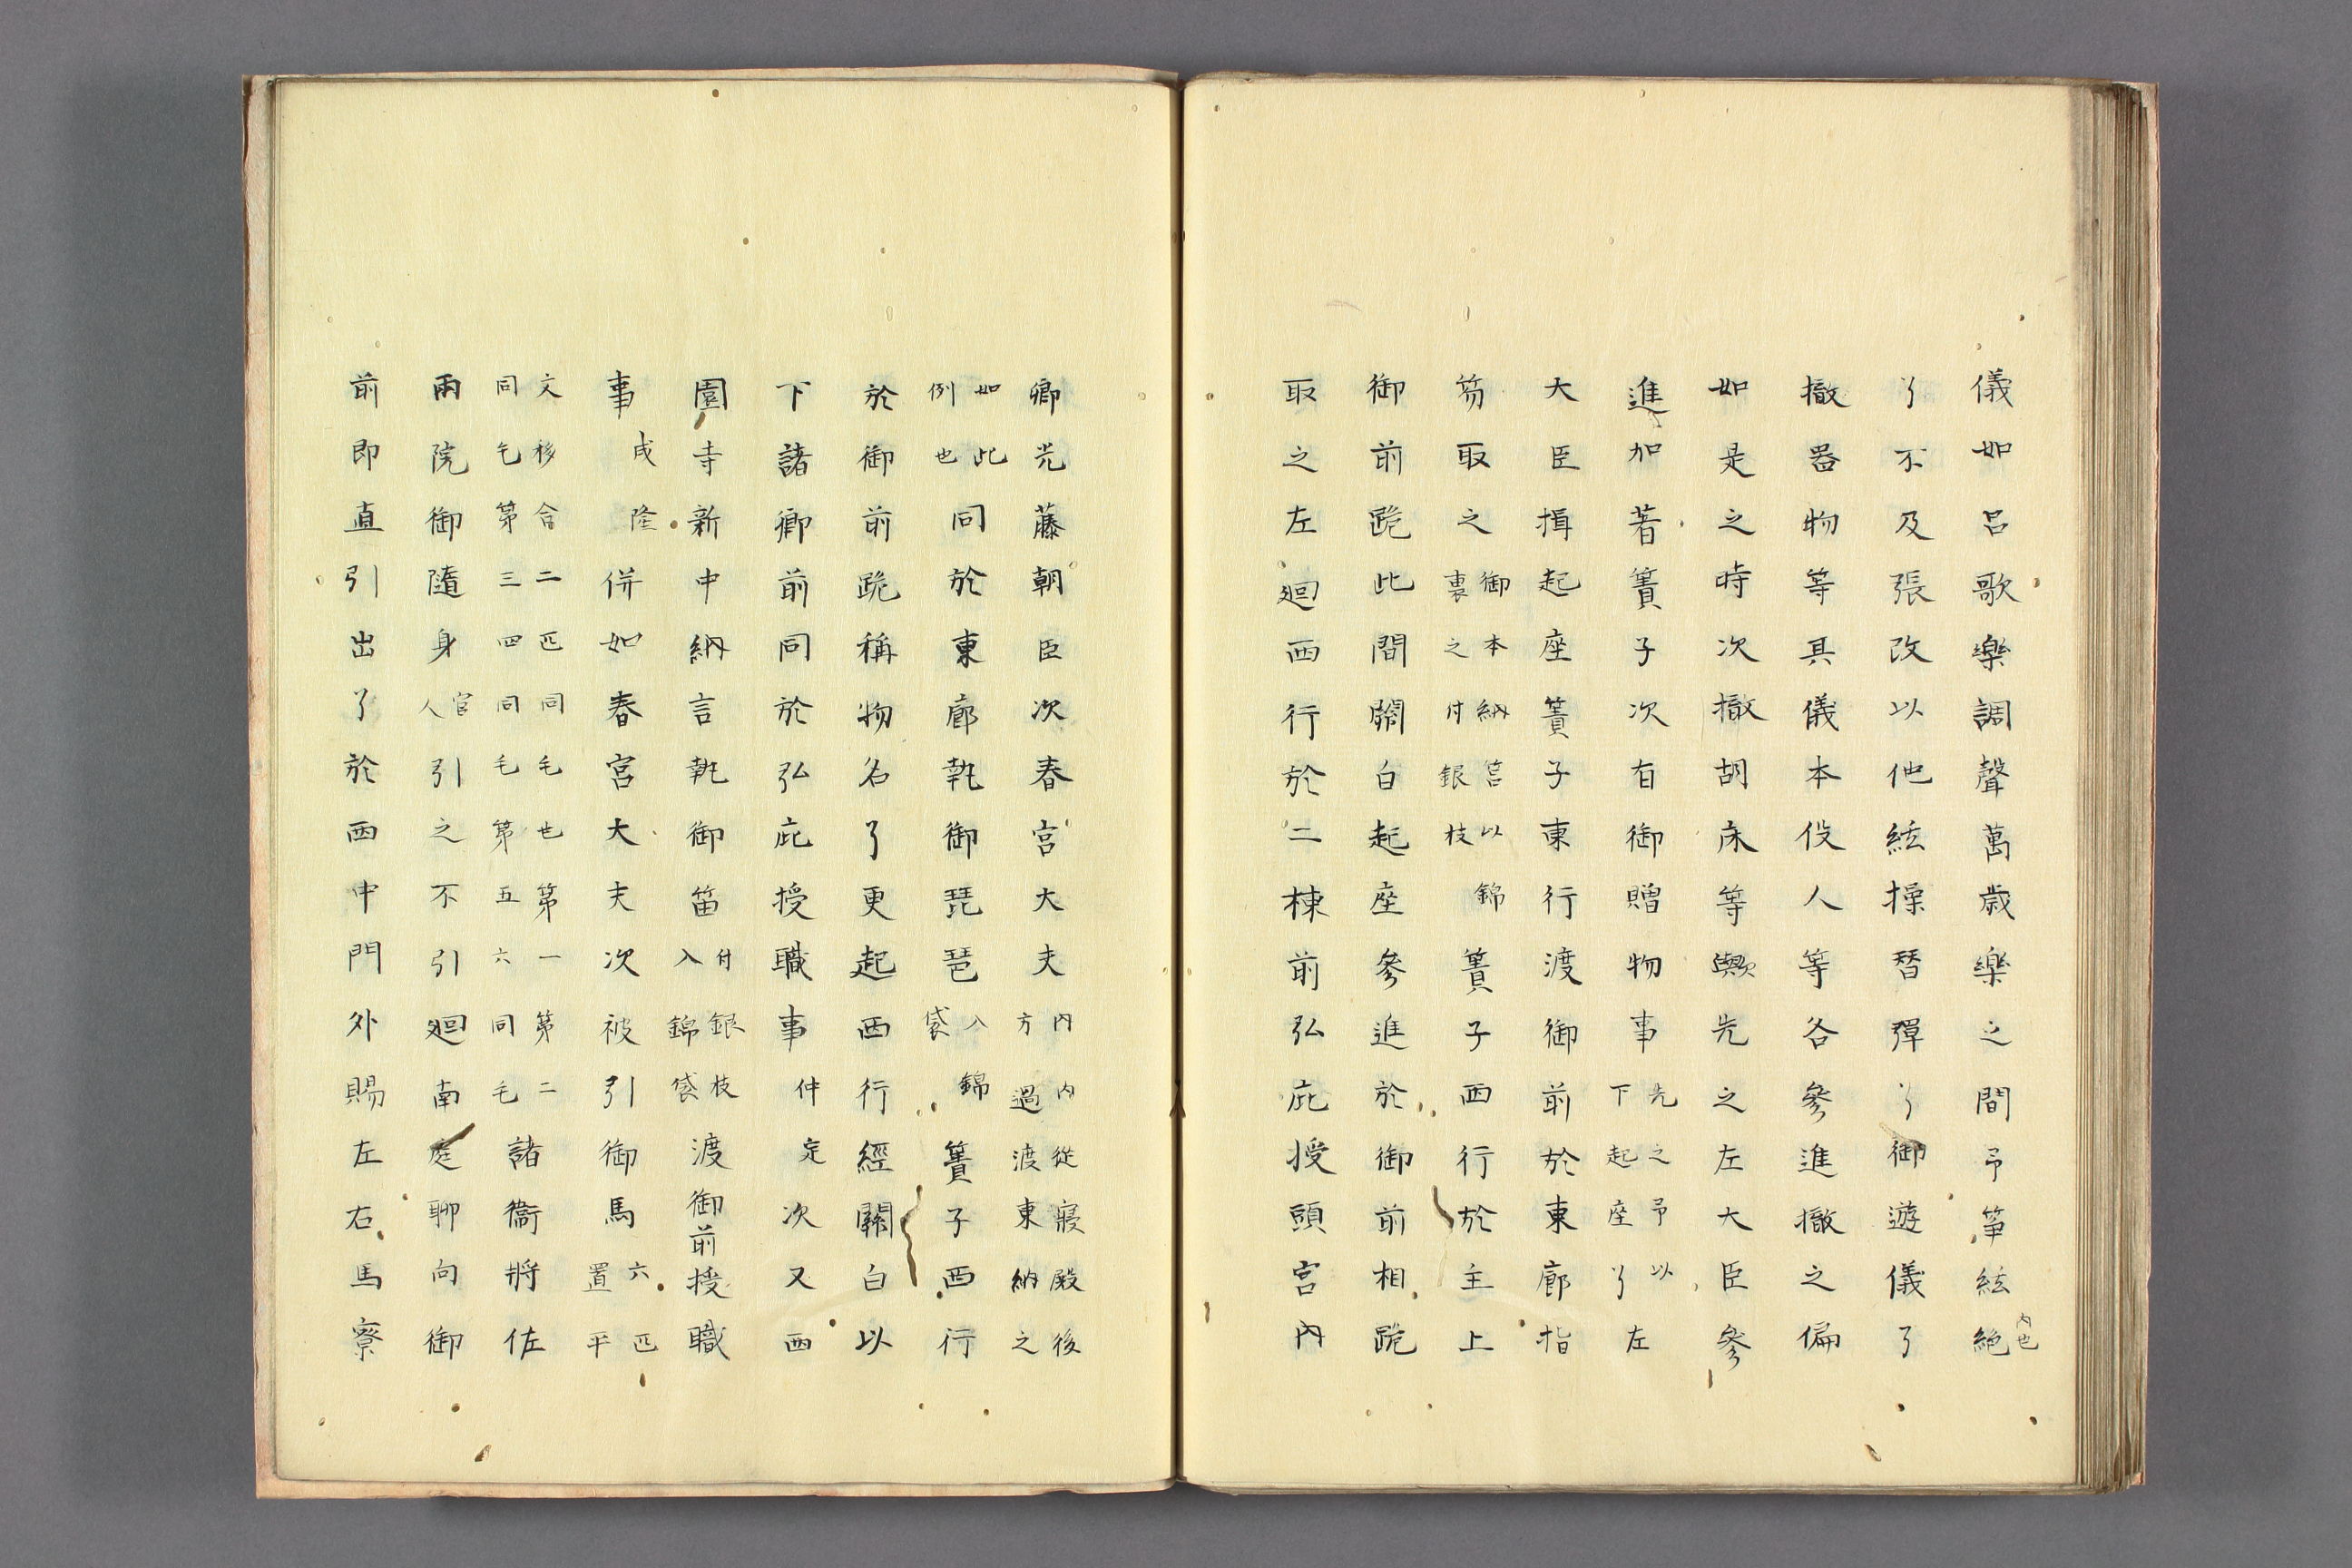 儀如呂歌樂調聲萬歳樂之間予箏絃絶内也
了不及張改以他絃操替彈了御遊儀了
撤器物等具儀本役人等各參進撤之偏
如是之時次撤胡床等歟先之左大臣參
進加著簀子次有御贈物事先之予以下起座了左
大臣揖起座簀子東行渡御前於東廊指
笏取之御本納筥以錦裹之付銀枝簀子西行於主上
御前跪此間關白起座參進於御前相跪
取之左廻西行於二棟前弘庇授頭宮内
卿光藤朝臣次春宮大夫内内從寢殿後方過渡東納之
如此例也同於東廊執御琵琶入錦袋簀子西行
於御前跪稱物名了更起西行經關白以
下諸卿前同於弘庇授職事仲定次又西
園寺新中納言執御笛付銀枝入錦袋渡御前授職
事成隆併如春宮大夫次被引御馬六匹置平
文移合二匹同毛也第一第二同毛第三四同毛第五六同毛諸衞將佐
兩院御隨身官人引之不引廻南庭聊向御
前即直引出了於西中門外賜左右馬寮